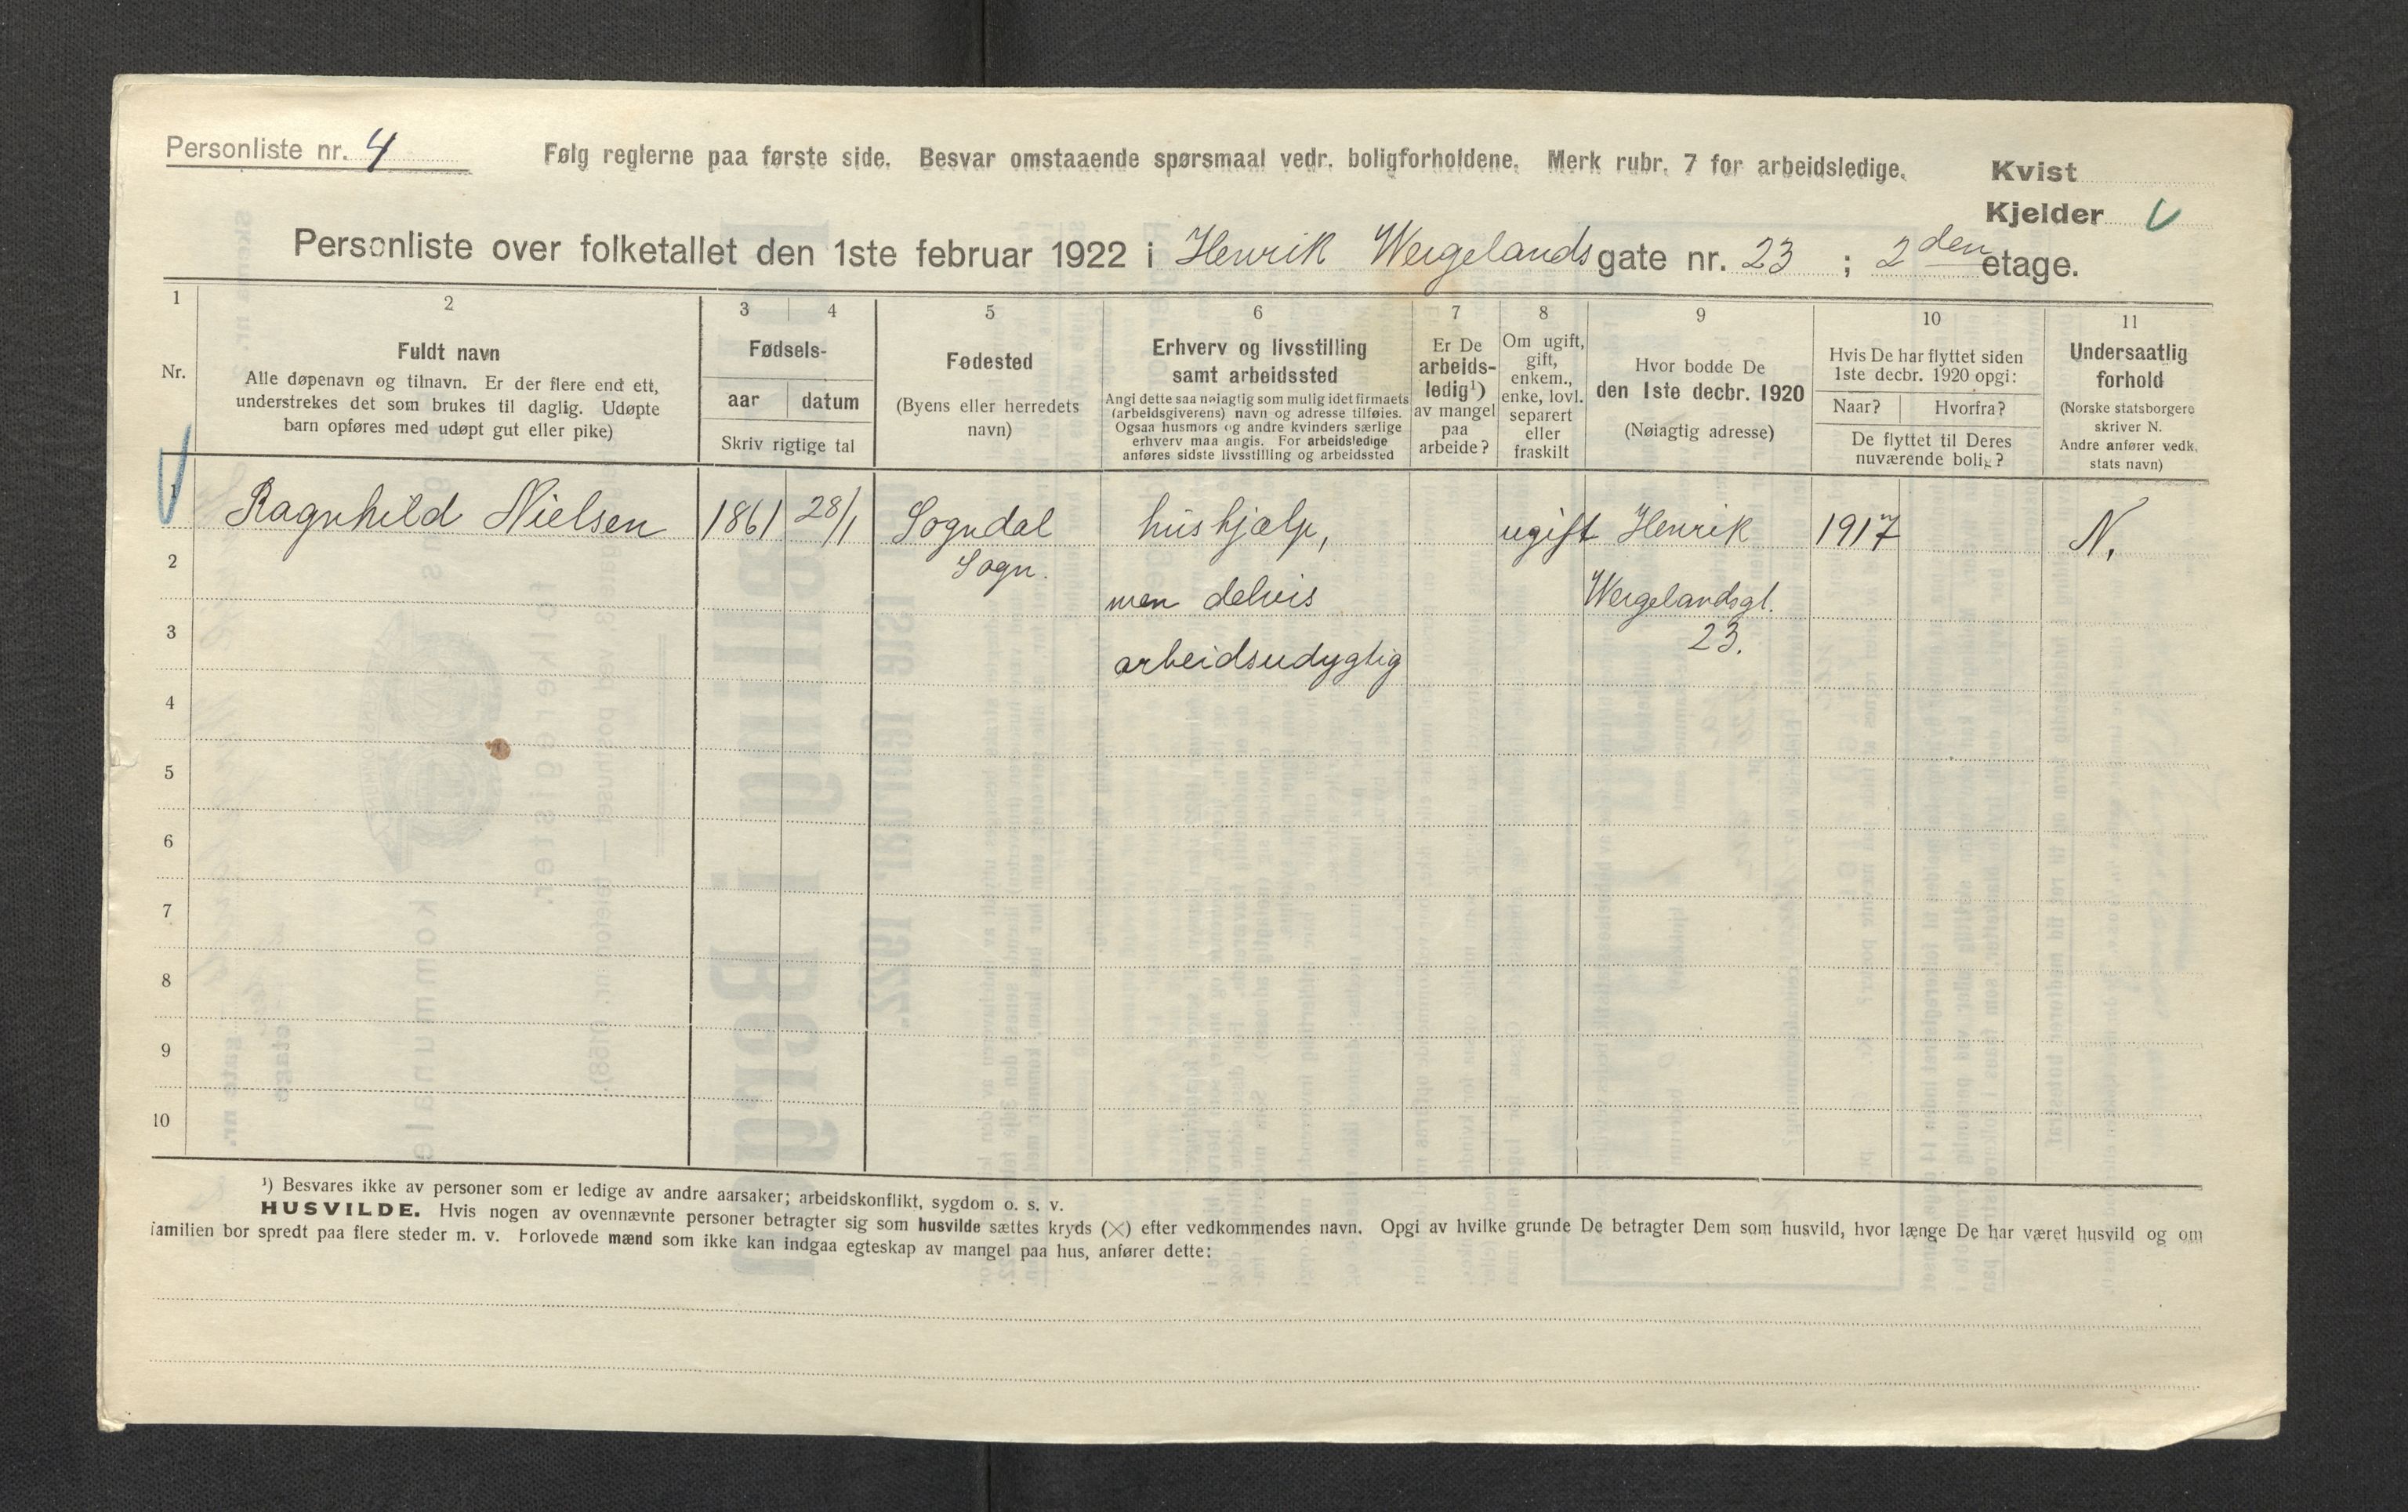 Personliste nr. 4
Følg reglerne paa første side. Besvar omstaaende spørsmaal vedr. boligforholdene. Merk rubr. 7 for arbeidsledige.
Kvist
Kjelder
Personliste over folketallet den 1ste februar 1922 i Henrik Wergelands gate nr. 23 ; 2den etage.
1 2 3 4 5 6 7 8 9 10 11
Nr.
Fuldt navn
Alle døpenavn og tilnavn. Er der flere end ett,
understrekes det som brukes til daglig. Udøpte
barn opføres med udøpt gut eller pike)
Fødsels-
aar datum
Skriv rigtige tal
Fødested
(Byens eller herredets
navn)
Erhverv og livsstilling
samt arbeidssted
Angi dette saa nøiagtig som mulig idet firmaets
(arbeidsgiverens) navn og adresse tilføies.
Ogsaa husmors og andre kvinders særlige
erhverv maa angis. For arbeidsledige
anføres sidste livsstilling og arbeidssted
Er De
arbeids-
ledig¹)
av mangel
paa
arbeide?
Om ugift,
gift,
enkem.,
enke, lovl.
separert
eller
fraskilt
Hvor bodde De
den 1ste decbr. 1920
(Nøiagtig adresse)
Hvis De har flyttet siden
1ste decbr. 1920 opgi:
Naar? Hvorfra?
De flyttet til Deres
nuværende bolig?
Undersaatlig
forhold
(Norske statsborgere
skriver N.
Andre anfører vedk.
stats navn)
1 Ragnhild Nielsen 1861 28/1 Sogndal hushjælp, ugift Henrik 1917 N.
2 Sogn. men delvis Wergelandsgt.
3 arbeidsudygtig 23.
4
5
6
7
8
9
10
¹) Besvares ikke av personer som er ledige av andre aarsaker; arbeidskonflikt, sygdom o. s. v.
HUSVILDE. Hvis nogen av ovennævnte personer betragter sig som husvilde sættes kryds (×) efter vedkommendes navn. Opgi av hvilke grunde De betragter Dem som husvild, hvor længe De har været husvild og om
familien bor spredt paa flere steder m. v. Forlovede mænd som ikke kan indgaa egteskap av mangel paa hus, anfører dette: